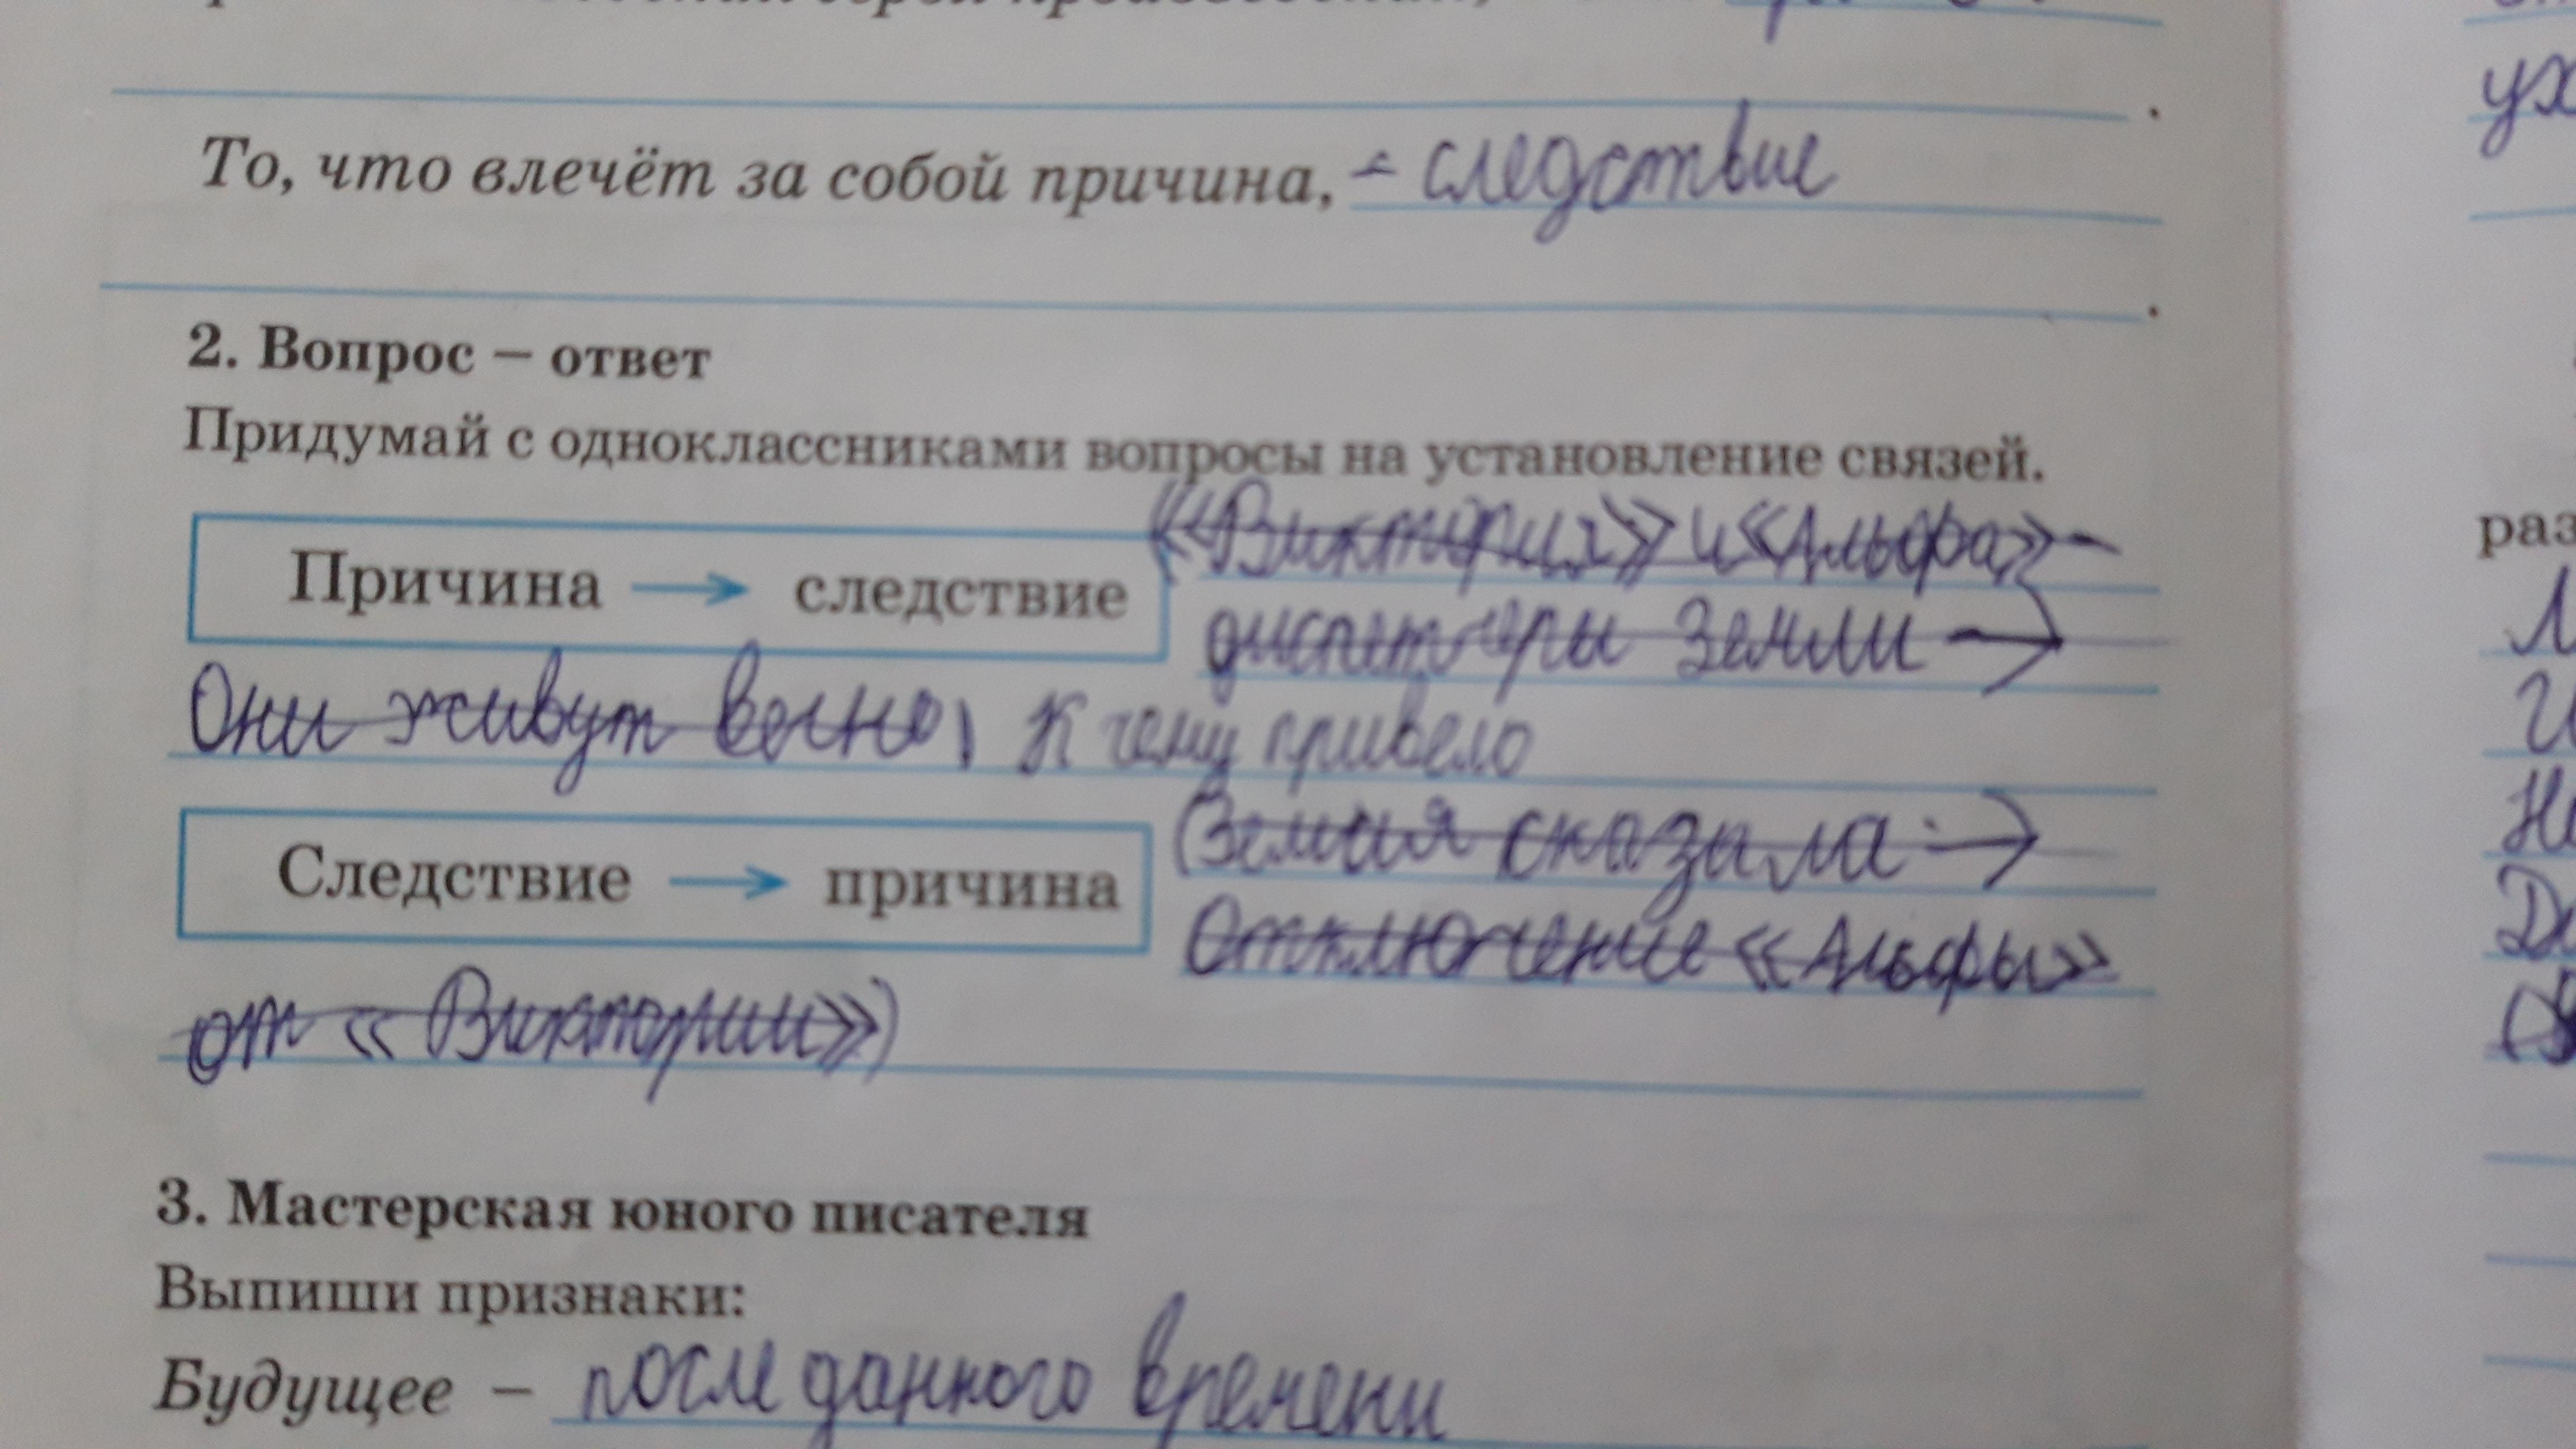 То, что влечёт за собой причина, - следствие
.
2. Вопрос – ответ
Придумай с одноклассниками вопросы на установление связей.
«Виктория» и «Альфа» -
Причина → следствие
диспетчеры Земли →
Они живут вечно, К чему привело
(Земля сказала: →
Следствие → причина
Отключение «Альфы»
от «Виктории»)
3. Мастерская юного писателя
Выпиши признаки:
Будущее – после данного времени
ух
раз